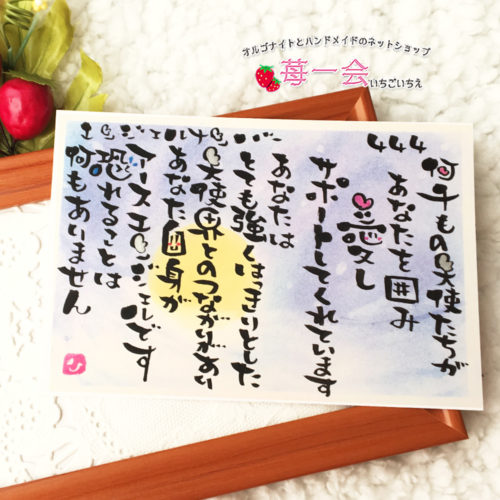 オルゴナイトとハンドメイドのネットショップ
苺一会
いちごいちえ
444
何千もの天使たちが
あなたを囲み
愛し
サポートしてくれています
あなたは
とても強くはっきりとした
天使界とのつながりがあり
あなた自身が
アースエンジェルです
恐れることは
何もありません
エンジェルナンバー